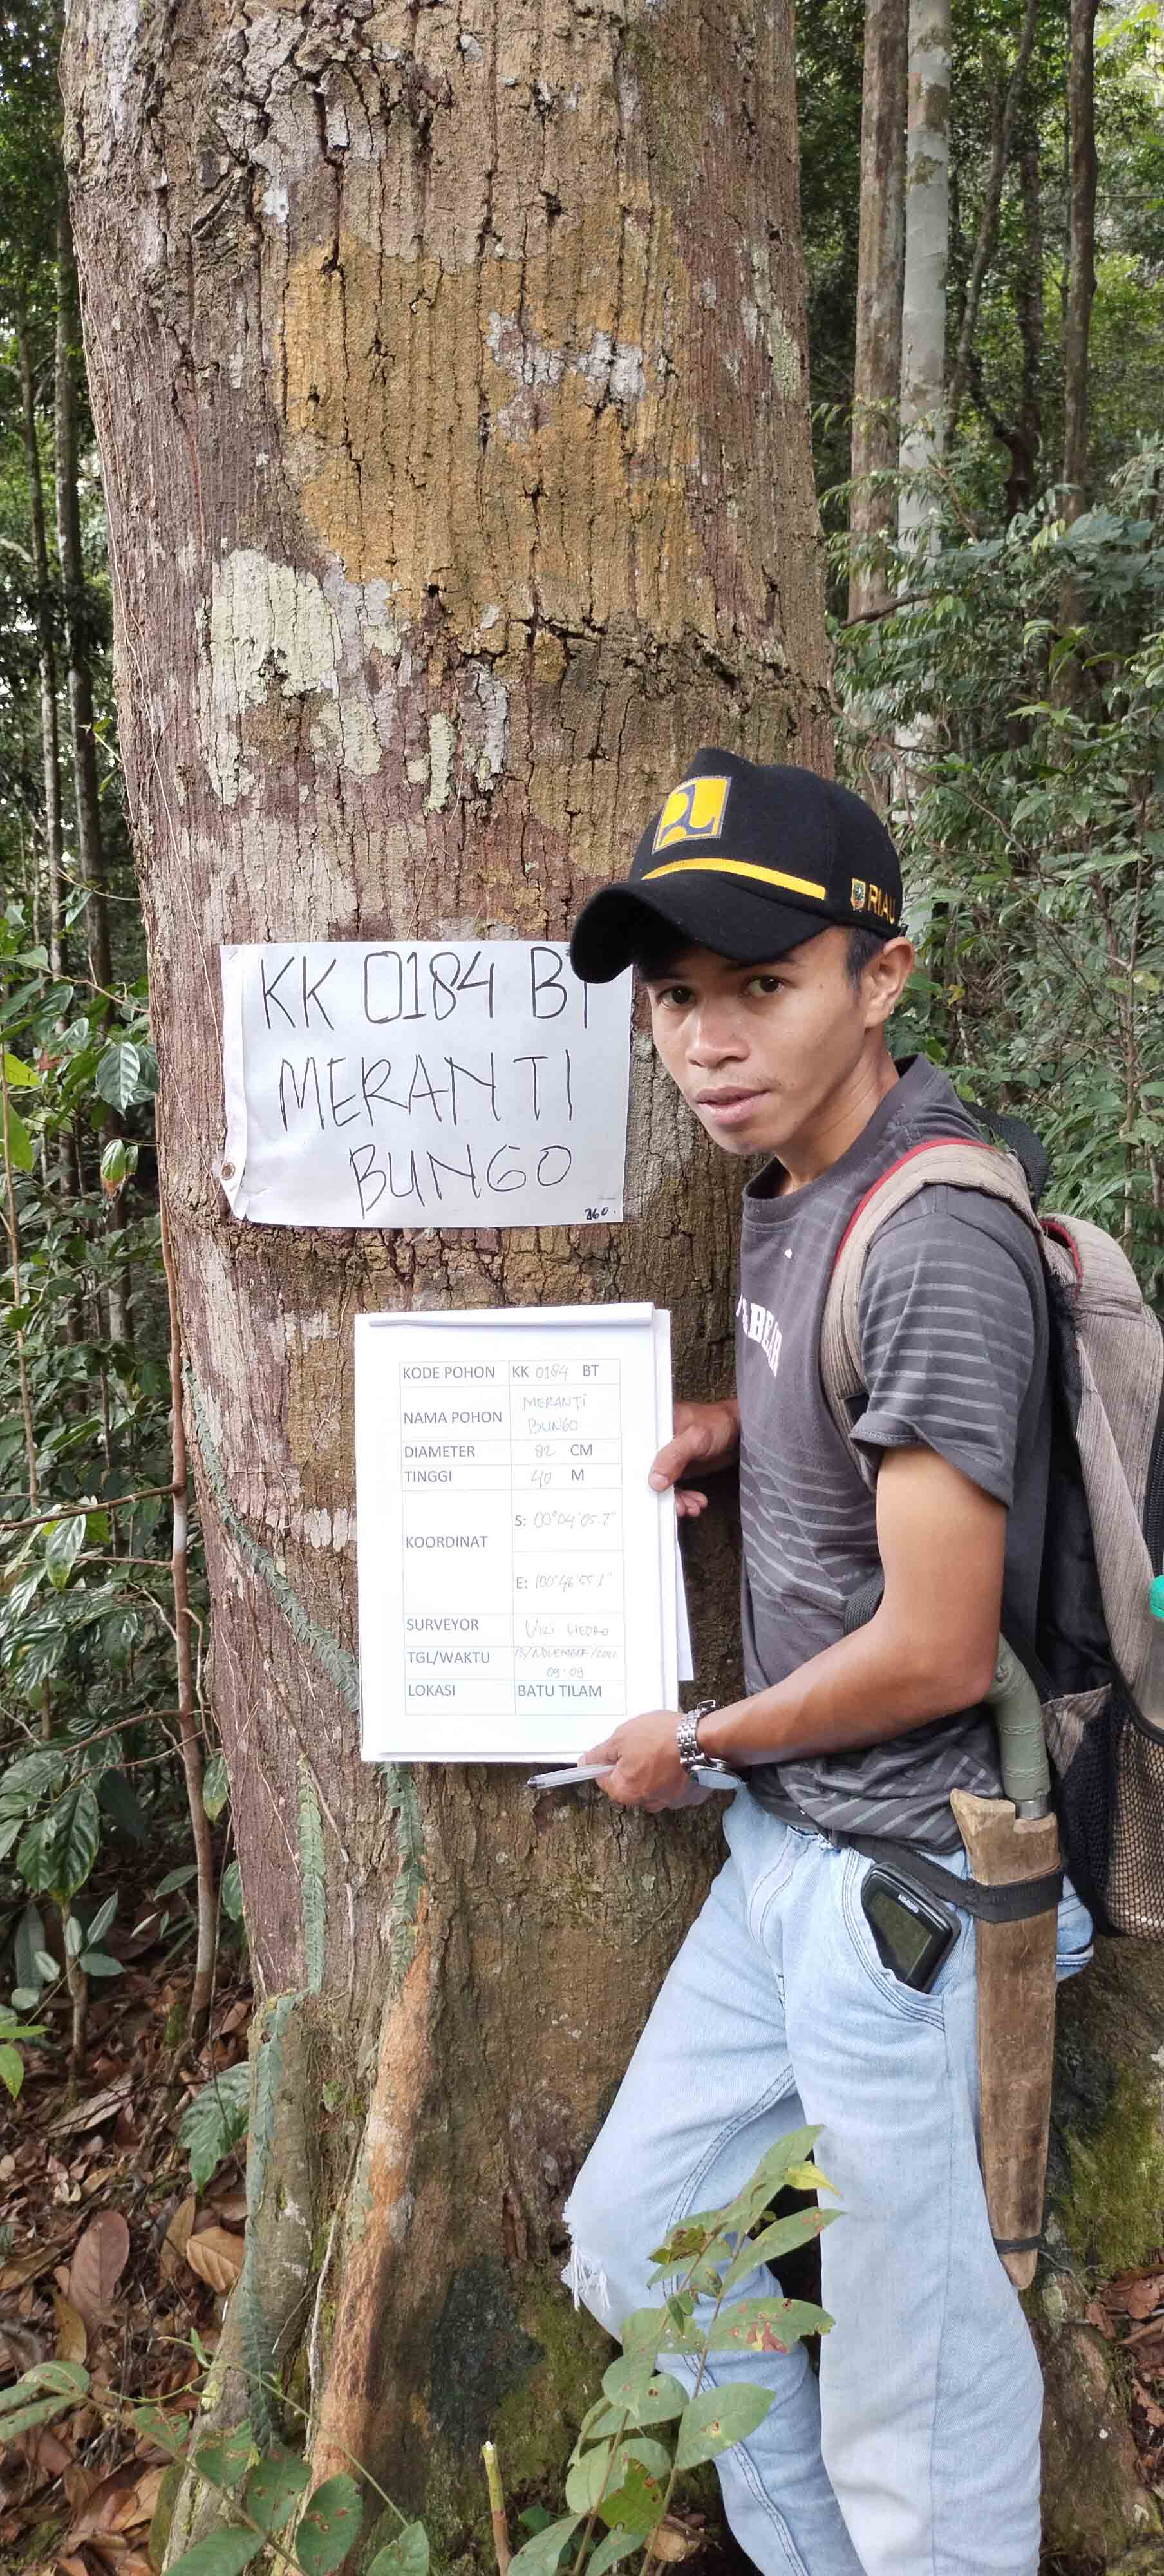 RIAU
KK 0184 BT
MERANTI
BUNGO
260.
KODE POHON KK 0184 BT
NAMA POHON MERANTI
BUNGO
DIAMETER 82 CM
TINGGI 40 M
KOORDINAT
S: 00°04'05.7"
E: 100°46'55.1"
SURVEYOR VIKI HEDRO
TGL/WAKTU NOVEMBER
09:09
LOKASI BATU TILAM